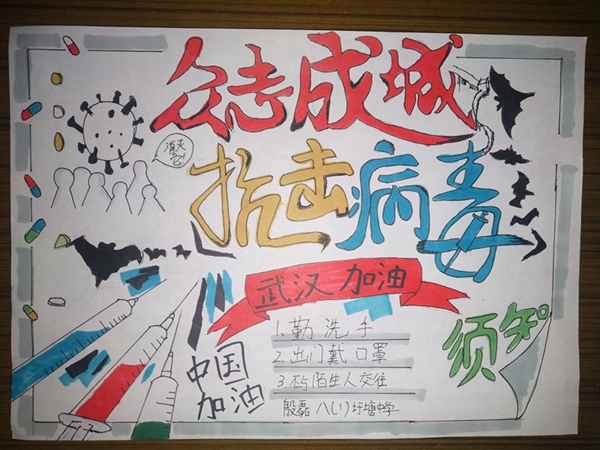 众志成城
消灭
它!
抗击病毒
武汉加油
须知
1.勤洗手
2.出门戴口罩
3.不与陌生人交往
殷磊 八(1) 圩塘中学
中国
加油